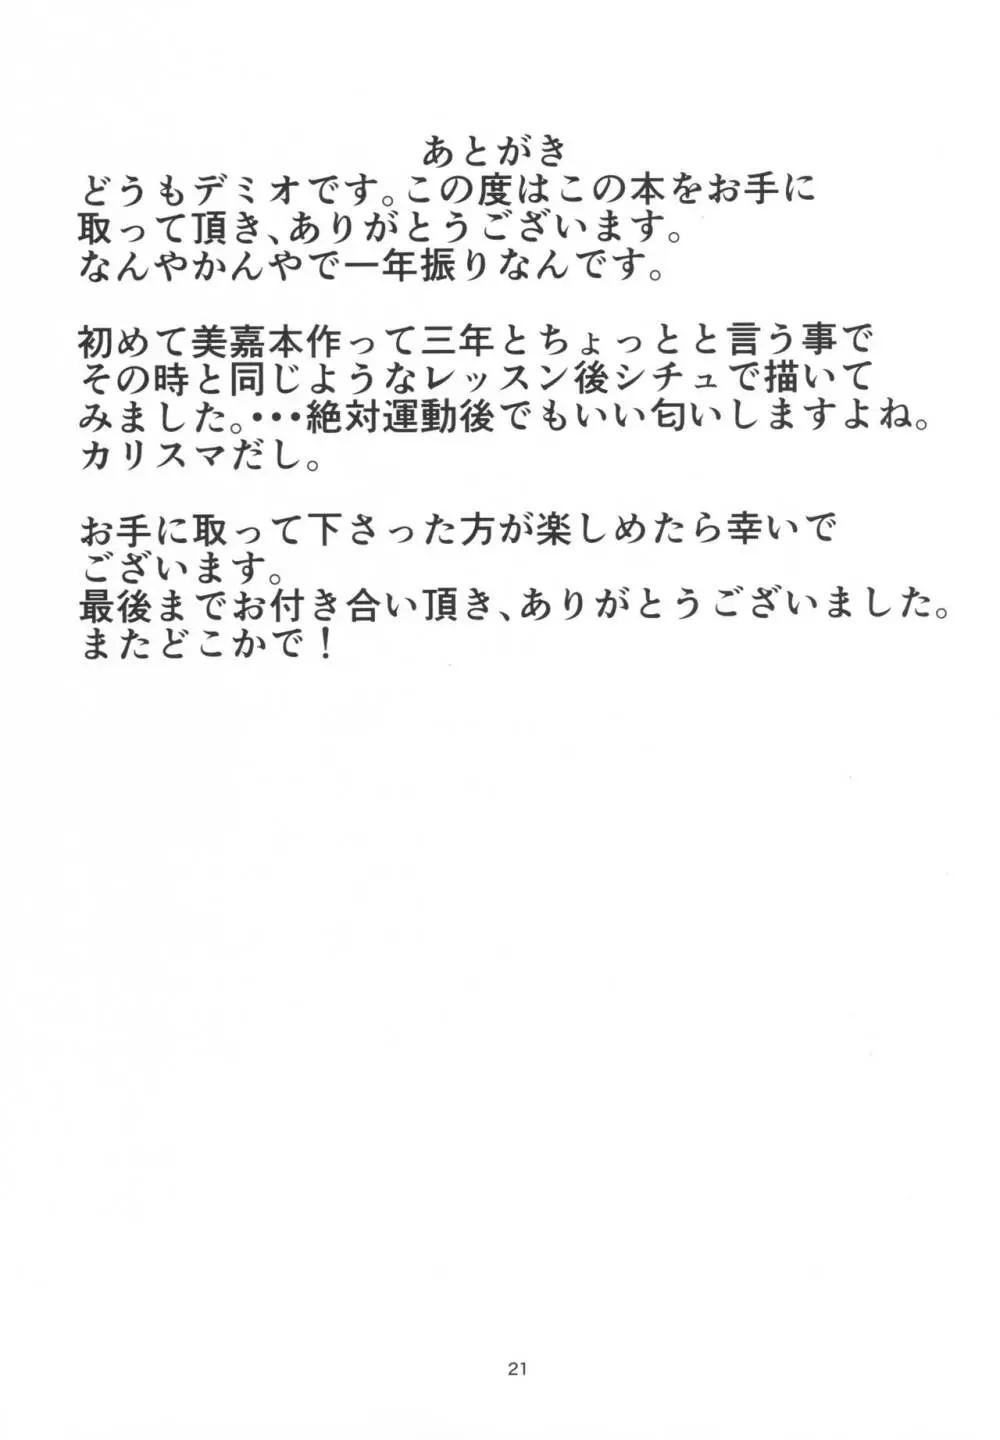 あとがき
どうもデミオです。この度はこの本をお手に
取って頂き、ありがとうございます。
なんやかんやで一年振りなんです。
初めて美嘉本作って三年とちょっとと言う事で
その時と同じようなレッスン後シチュで描いて
みました。・・・絶対運動後でもいい匂いしますよね。
カリスマだし。
お手に取って下さった方が楽しめたら幸いで
ございます。
最後までお付き合い頂き、ありがとうございました。
またどこかで！
21